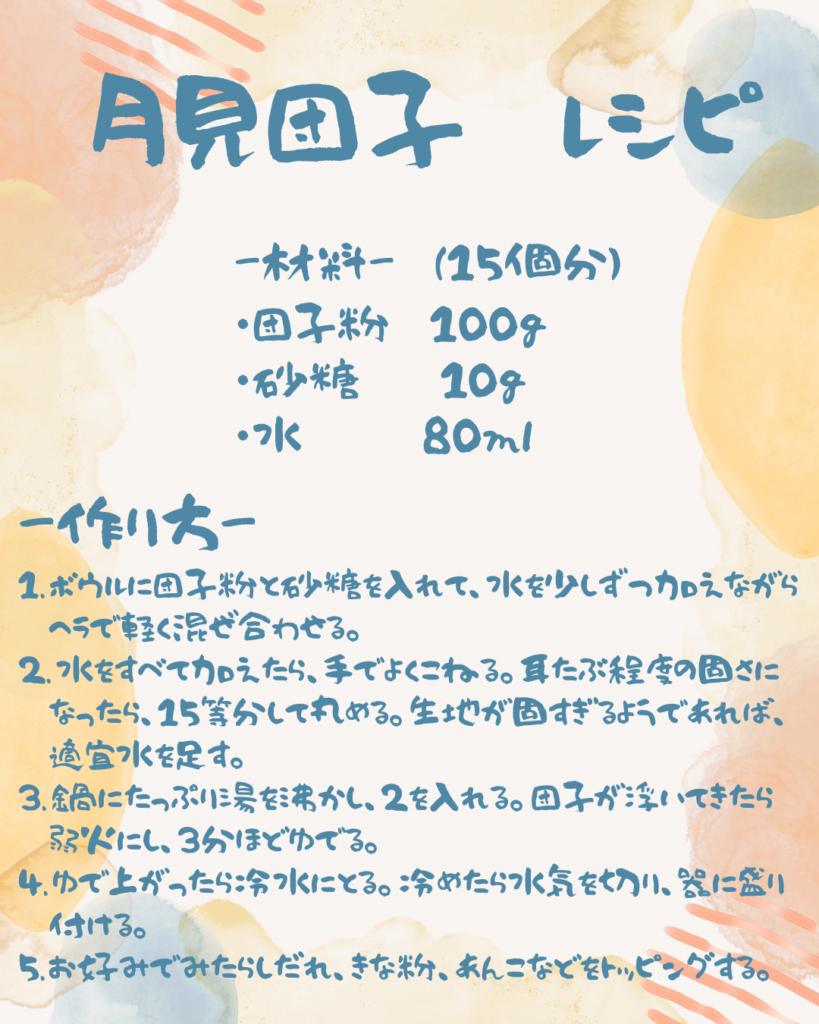 月見団子　レシピ
ー材料ー　(15個分)
・団子粉　100g
・砂糖　10g
・水　80ml
ー作り方ー
1.ボウルに団子粉と砂糖を入れて、水を少しずつ加えながら
ヘラで軽く混ぜ合わせる。
2.水をすべて加えたら、手でよくこねる。耳たぶ程度の固さに
なったら、15等分して丸める。生地が固すぎるようであれば、
適宜水を足す。
3.鍋にたっぷり湯を沸かし、2を入れる。団子が浮いてきたら
弱火にし、3分ほどゆでる。
4.ゆで上がったら冷水にとる。冷めたら水気を切り、器に盛り
付ける。
5.お好みでみたらしだれ、きな粉、あんこなどをトッピングする。